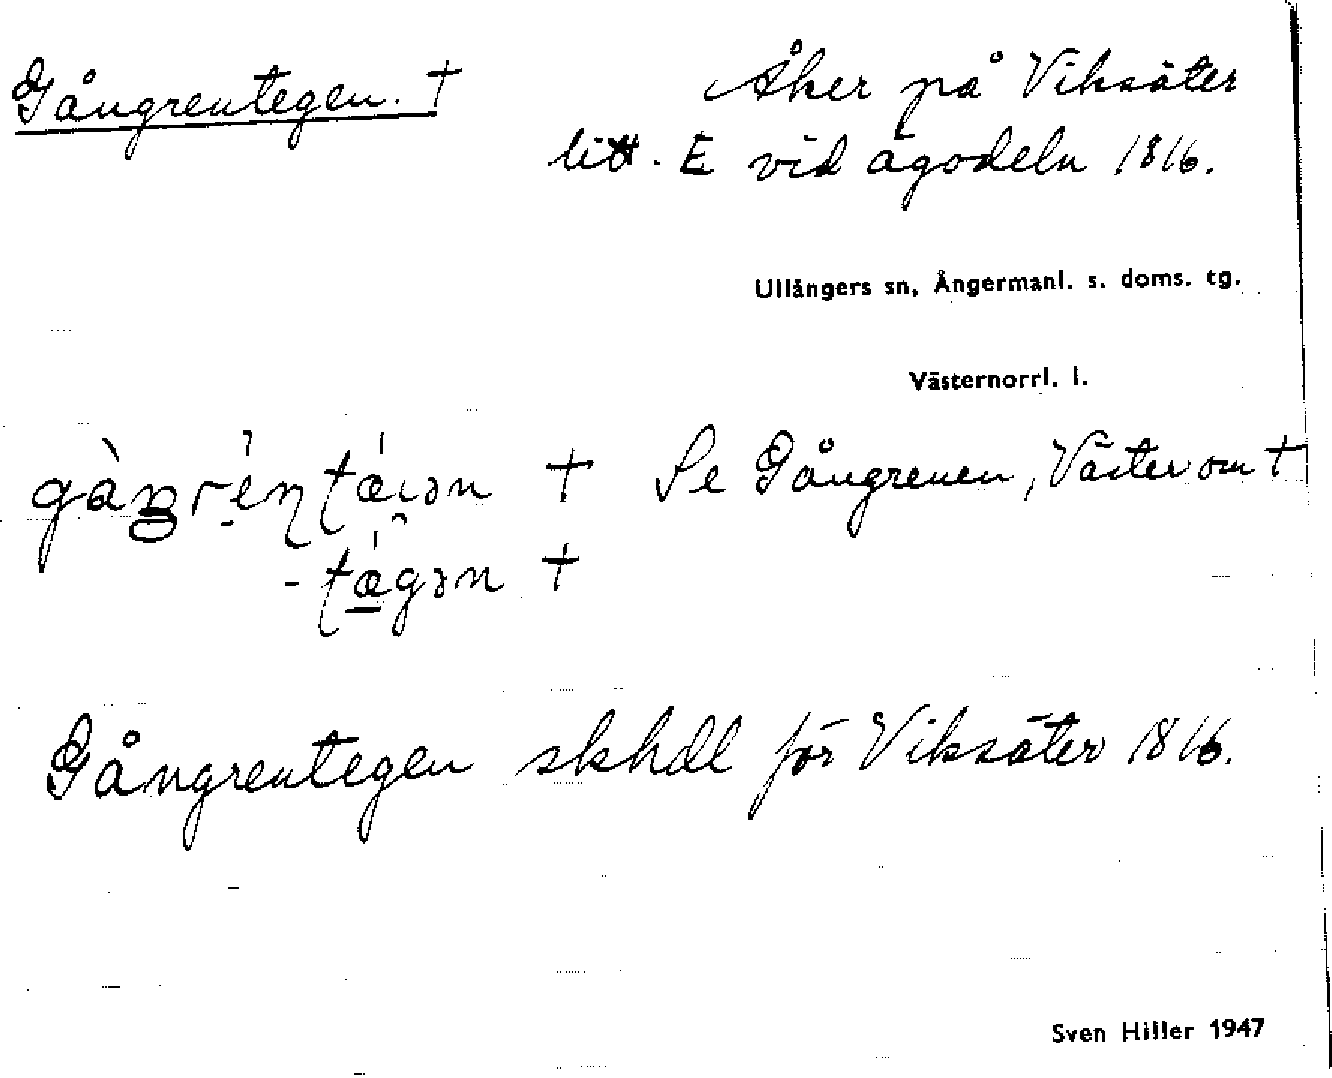 Gångrentegen. † Åker på Viksäter
litt. E vid ägodeln 1816.
Ullångers sn, Ångermanl. s. doms. tg.
Västernorrl. l.
† Se Gångrenen, Väster om †
†
Gångrentegen skhdl för Viksäter 1816.
Sven Hiller 1947